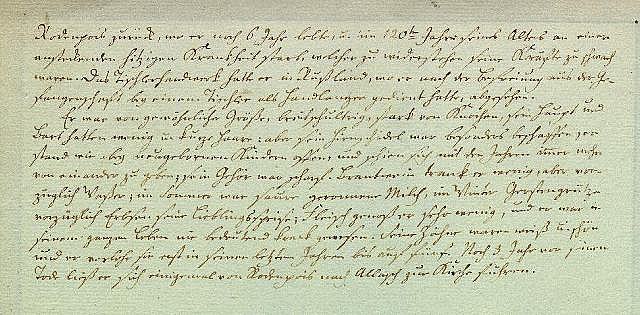 Rodenpois zurück, wo er noch 6 Jahr lebte, u. im 120ten Jahre seines Alters an einer
ansteckenden hitzigen Krankheit starb, welcher zu widerstehen seine Kräfte zu schwach
waren. Das Tischlerhandwerk hatte er in Rußland, wo er nach der Befreiung aus der Ge-
fangenschaft bey einem Tischler als Handlanger gedient hatte, abgesehen.
Er war von gewöhnlicher Größe, breitschultrig, stark von Knochen, sein Haupt und
Bart hatten wenig u. kurze Haare, aber sein Hirnschädel war besonders beschaffen, er
stand wie bey neugebornen Kindern offen, und schien sich mit den Jahren immer mehr
von einander zu geben; sein Gehör war scharf. Brantwein trank er wenig, aber vor-
züglich Wasser; im Sommer war saure geronnene Milch, im Winter Gerstengrütze
vorzüglich Erbsen seine Lieblingsspeise; Fleisch genoß er sehr wenig, und er war in
seinem ganzen Leben nie bedeutend krank gewesen. Seine Zähne waren weiß u. schön
und er verlohr sie erst in seinen letzten Jahren bis auf fünf. Noch 3 Jahr vor seinem
Tode ließ er sich einigemal von Rodenpois nach Allasch zur Kirche führen.